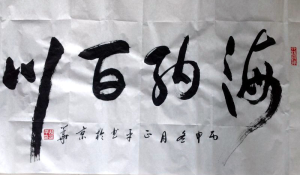 海纳百川
丙申冬月正平书于京华